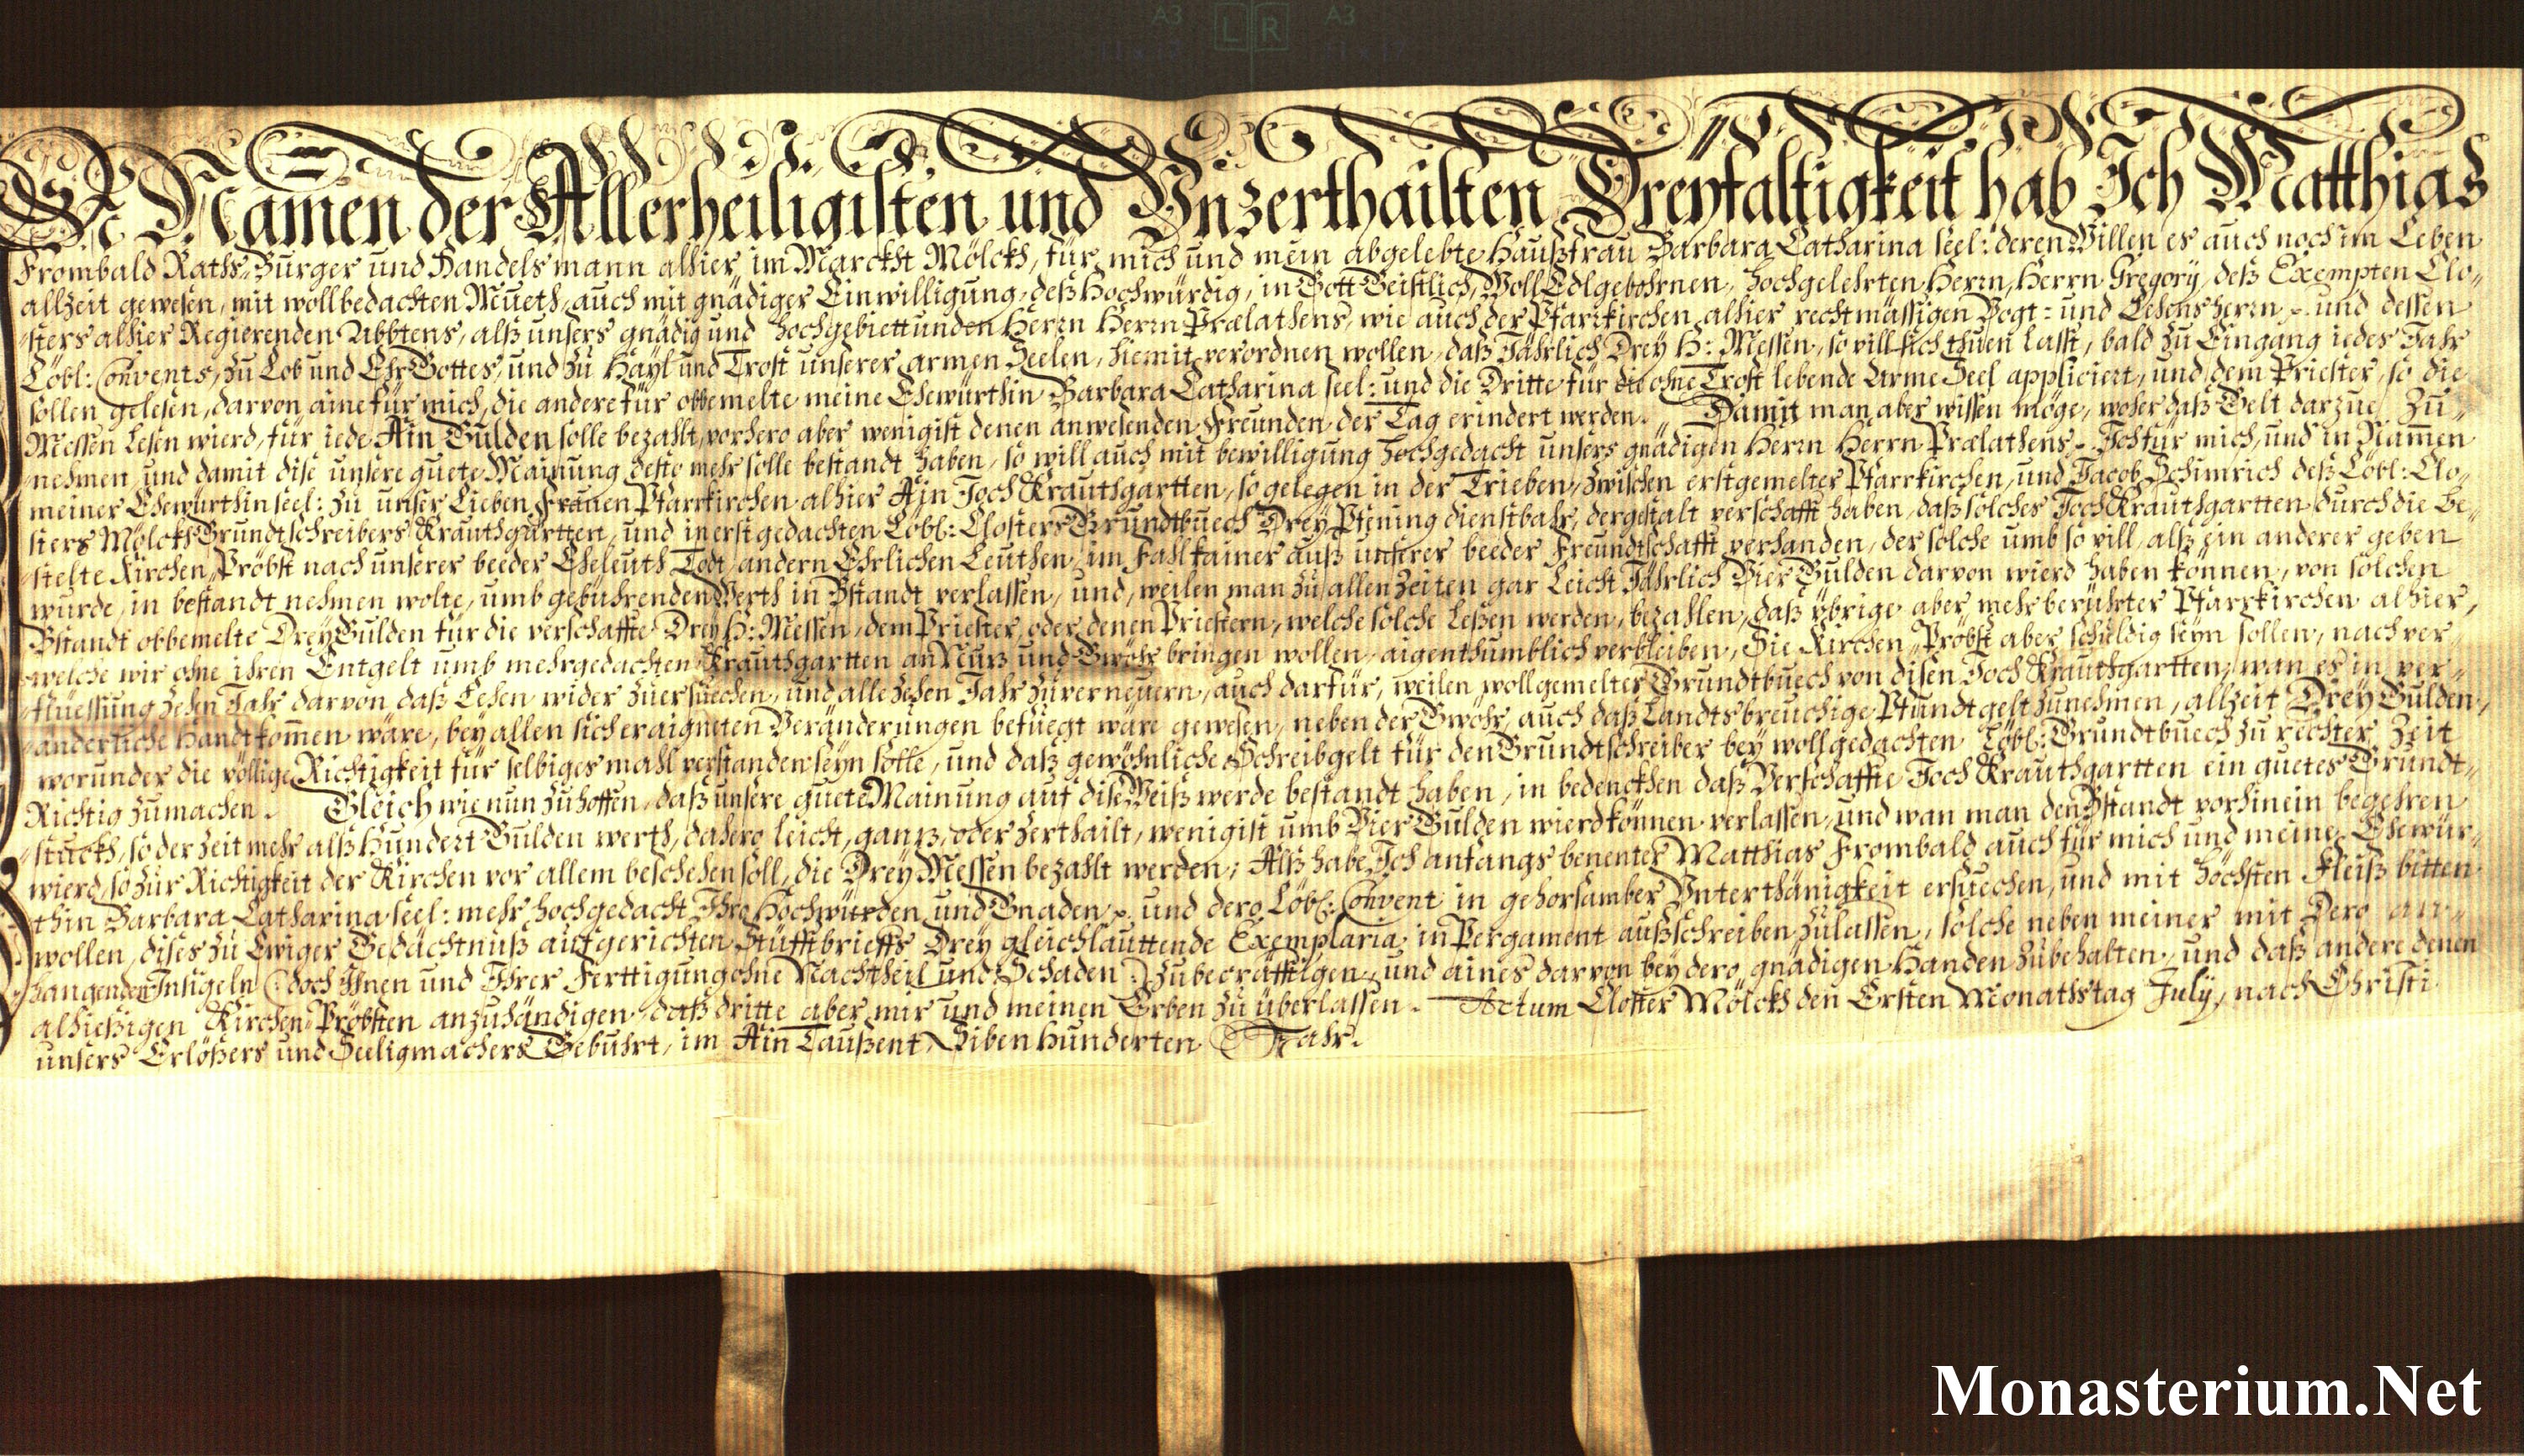 A3 L R A3
Im Namen der Allerheiligisten und Unzerthailten Dreyfaltigkeit hab Ich Matthias
Frombald Raths-Burger und Handelsmann alhier im Marckht Mölckh, für mich und mein abgelebte Haußfrau Barbara Catharina seel: deren Willen es auch noch im Leben
allzeit gewesen, mit wollbedachten Mueth, auch mit gnädiger Einwilligung, deß Hochwürdig, in Gott Geistlich, WollEdlgebohrnen, Hochgelehrten Herrn, Herrn Gregorÿ, deß Exempten Clo-
sters alhier Regierenden Abbtens, alß unsers gnädig und Hochgebiettunden Herrn Herrn Prælathens, wie auch der Pfarrkirchen alhier rechtmässigen Vogt- und Lehensherrn und dessen
Löbl: Convents, zu Lob und Ehr Gottes, und zu Hayl und Trost unserer armen Seelen, hiemit verordnen wollen, daß Jährlich Drey H: Messen, so vill sich thuen lasst, bald zu Eingang iedes Jahr
sollen gelesen, darvon aine für mich, die andere für obbemelte meine Ehewürthin Barbara Catharina seel: und die Dritte für die ohne Trost lebende Arme Seel appliciert, und dem Priester, so die
Messen Lesen wierd, für iede Ain Gulden solle bezahlt, vorhero aber wenigist denen anwesenden Freunden der Tag erindert werden. Damit man aber wissen möge, woher daß Gelt darzue zu-
nehmen, und damit dise unsere guete Mainung desto mehr solle bestandt haben, so will auch mit bewilligung Hochgedacht unsers gnädigen Herrn Herrn Prælathens, Ich für mich, und in Namen
meiner Ehewürthin seel: zu unser Lieben Frauen Pfarrkirchen alhier Ain Joch Krauthgartten, so gelegen in der Trieben, zwischen erstgemelter Pfarrkirchen, und Jacob Schimrich deß Löbl: Clo-
sters Mölckh Grundtschreibers Krauthgartten, und in erst gedachten Löbl: Closters Grundtbuech Drey Pfening dienstbahr, dergestalt verschafft haben, daß solches Joch Krauthgartten durch die be-
stelte Kirchen-Pröbst nach unserer beeder Eheleuth Todt, andern Ehrlichen Leuthen, im Fahl kainer auß unserer beeder Freundtschafft verhanden, der solche umb so vill, alß ein anderer geben
wurde, in bestandt nehmen wolte, umb gebührenden Werth in Bstandt verlassen, und, weilen man zu allen Zeiten gar Leicht Jährlich Vier Gulden darvon wierd haben können, von solchen
Bstandt obbemelte Drey Gulden für die verschaffte Drey H: Messen, dem Priester, oder denen Priestern, welche solche Leßen werden, bezahlen, daß ybrige aber mehr berührter Pfarrkirchen alhier,
welche wir ohne ihren Entgelt umb mehrgedachten Krauthgartten an Nutz und Gwöhr bringen wollen, aigenthumblich verbleiben, Die Kirchen-Pröbst aber schuldig seyn sollen, nach ver-
fluessung zehen Jahr darvon daß Lehen wider zuersuechen, und alle zehen Jahr zuverneuern, auch darfür, weilen wollgemeltes Grundtbuech von disen Joch Krauthgartten, wan es in ver-
änderliche Handt kommen wäre, bey allen sich eraigneten Veränderungen befuegt wäre gewesen, neben der Gwöhr, auch daß Landtsbreuchige Pfundtgelt zunehmen, allzeit Drey Gulden,
worunder die völlige Richtigkeit für selbiges mahl verstanden seyn solle, und daß gewöhnliche Schreibgelt für den Grundtschreiber bey wollgedachten Löbl: Grundtbuech zu rechter Zeit
Richtig zumachen. Gleich wie nun zuhoffen, daß unsere guete Mainung auf dise Weiß werde bestandt haben, in bedenckhen daß Verschaffte Joch Krauthgartten ein guetes Grundt-
stuckh, so der zeit mehr alß Hundert Gulden werth, dahero leicht, gantz, oder zerthailt, wenigist umb Vier Gulden wierd können verlassen, und wan man den Bstandt vorhinein begehren
wierd, so zur Richtigkeit der Kirchen vor allem beschehen soll, die Drey Messen bezahlt werden; Alß habe Ich anfangs benenter Matthias Frombald auch für mich und meine Ehewür-
thin Barbara Catharina seel: mehr hochgedacht Ihro Hochwürden und Gnaden und dero Löbl: Convent in gehorsamber Unterthänigkeit ersuechen, und mit höchsten Fleiß bitten
wollen, dises zu Ewiger Gedächtnuß aufgerichten Stüfftbrieffs Drey gleichlauttende Exemplaria in Pergament außschreiben zulassen, solche neben meiner mit Dero an-
hangenden Insigeln (: doch Ihnen und Ihrer Ferttigung ohne Nachtheil und Schaden :) zubecräfftigen, und aines darvon bey dero gnädigen Handen zubehalten, und daß andere denen
alhießigen Kirchen-Pröbsten anzuhändigen, daß dritte aber mir und meinen Erben zu überlassen. Actum Closter Mölckh den Ersten Monathstag Julÿ, nach Christi
unsers Erlößers und Seeligmachers Gebuhrt, im Ain Taußent Siben Hunderten Jahr.
Monasterium.Net